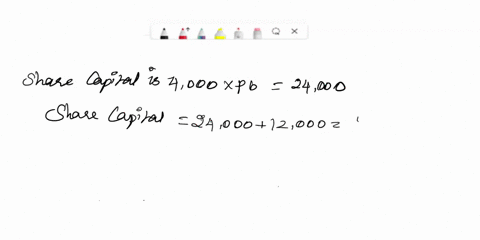 Share Capital is 4,000 × P6 = 24,000
Share Capital = 24,000 + 12,000 =